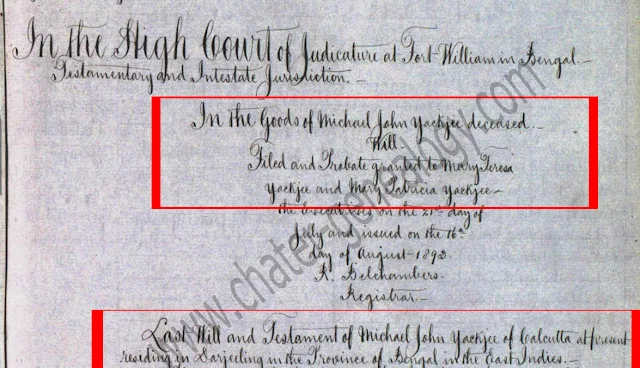 In the High Court of Judicature at Fort William in Bengal.—
Testamentary and Intestate Jurisdiction.—
In the Goods of Michael John Yackjee deceased.—
Will.
Filed and Probate granted to Mary Teresa
Yackjee and Mary Patricia Yackjee—
the Executrixes on the 21st day of
July and issued on the 16th
day of August 1892.
R. Belchambers.
Registrar.—
Last Will and Testament of Michael John Yackjee of Calcutta at present
residing in Darjeeling in the Province of Bengal in the East Indies.—
www.chater-genealogy.com